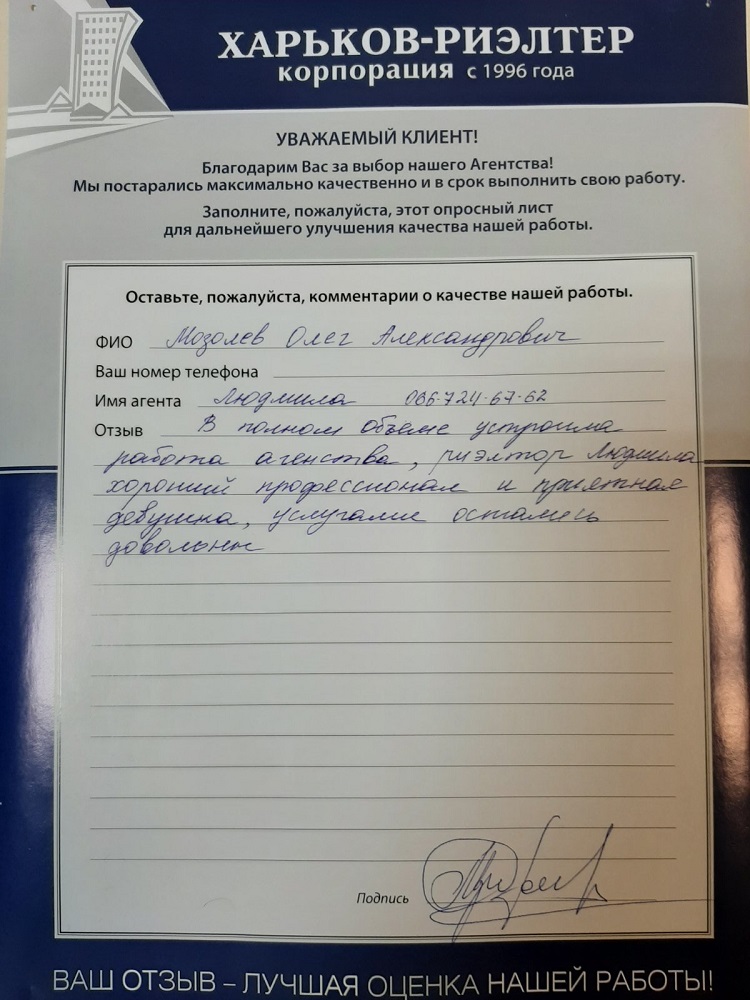 ХАРЬКОВ-РИЭЛТЕР
корпорация с 1996 года
УВАЖАЕМЫЙ КЛИЕНТ!
Благодарим Вас за выбор нашего Агентства!
Мы постарались максимально качественно и в срок выполнить свою работу.
Заполните, пожалуйста, этот опросный лист
для дальнейшего улучшения качества нашей работы.
Оставьте, пожалуйста, комментарии о качестве нашей работы.
ФИО Мозолев Олег Александрович
Ваш номер телефона
Имя агента Людмила 066-724-67-62
Отзыв В полном объеме устроила
работа агенства, риэлтор Людмила
хороший профессионал и приятная
девушка, услугами остались
довольны
Подпись
ВАШ ОТЗЫВ – ЛУЧШАЯ ОЦЕНКА НАШЕЙ РАБОТЫ!